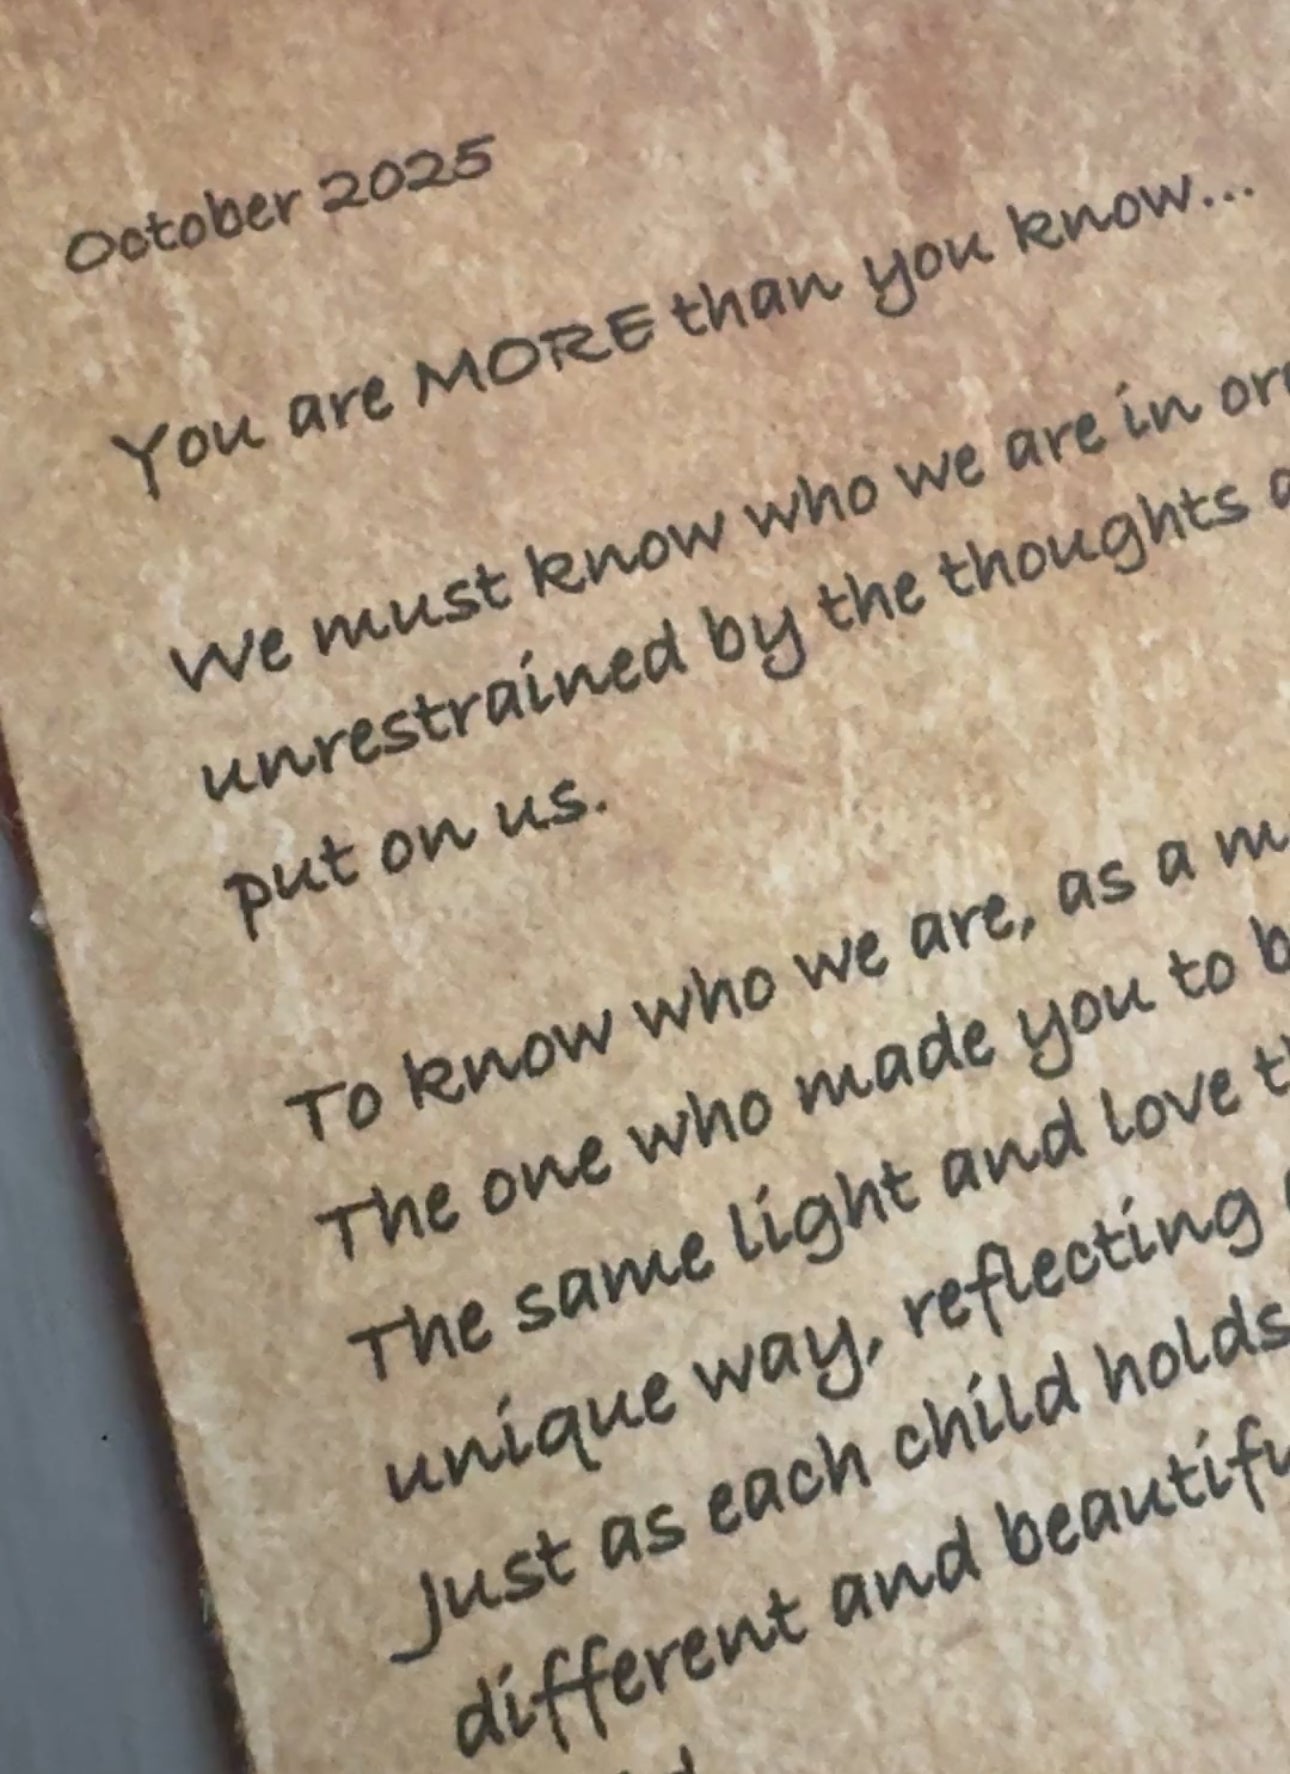 October 2025
You are MORE than you know...
We must know who we are in
unrestrained by the thoughts
put on us.
To know who we are, as a
The one who made you to
The same light and love
unique way, reflecting
Just as each child holds
different and